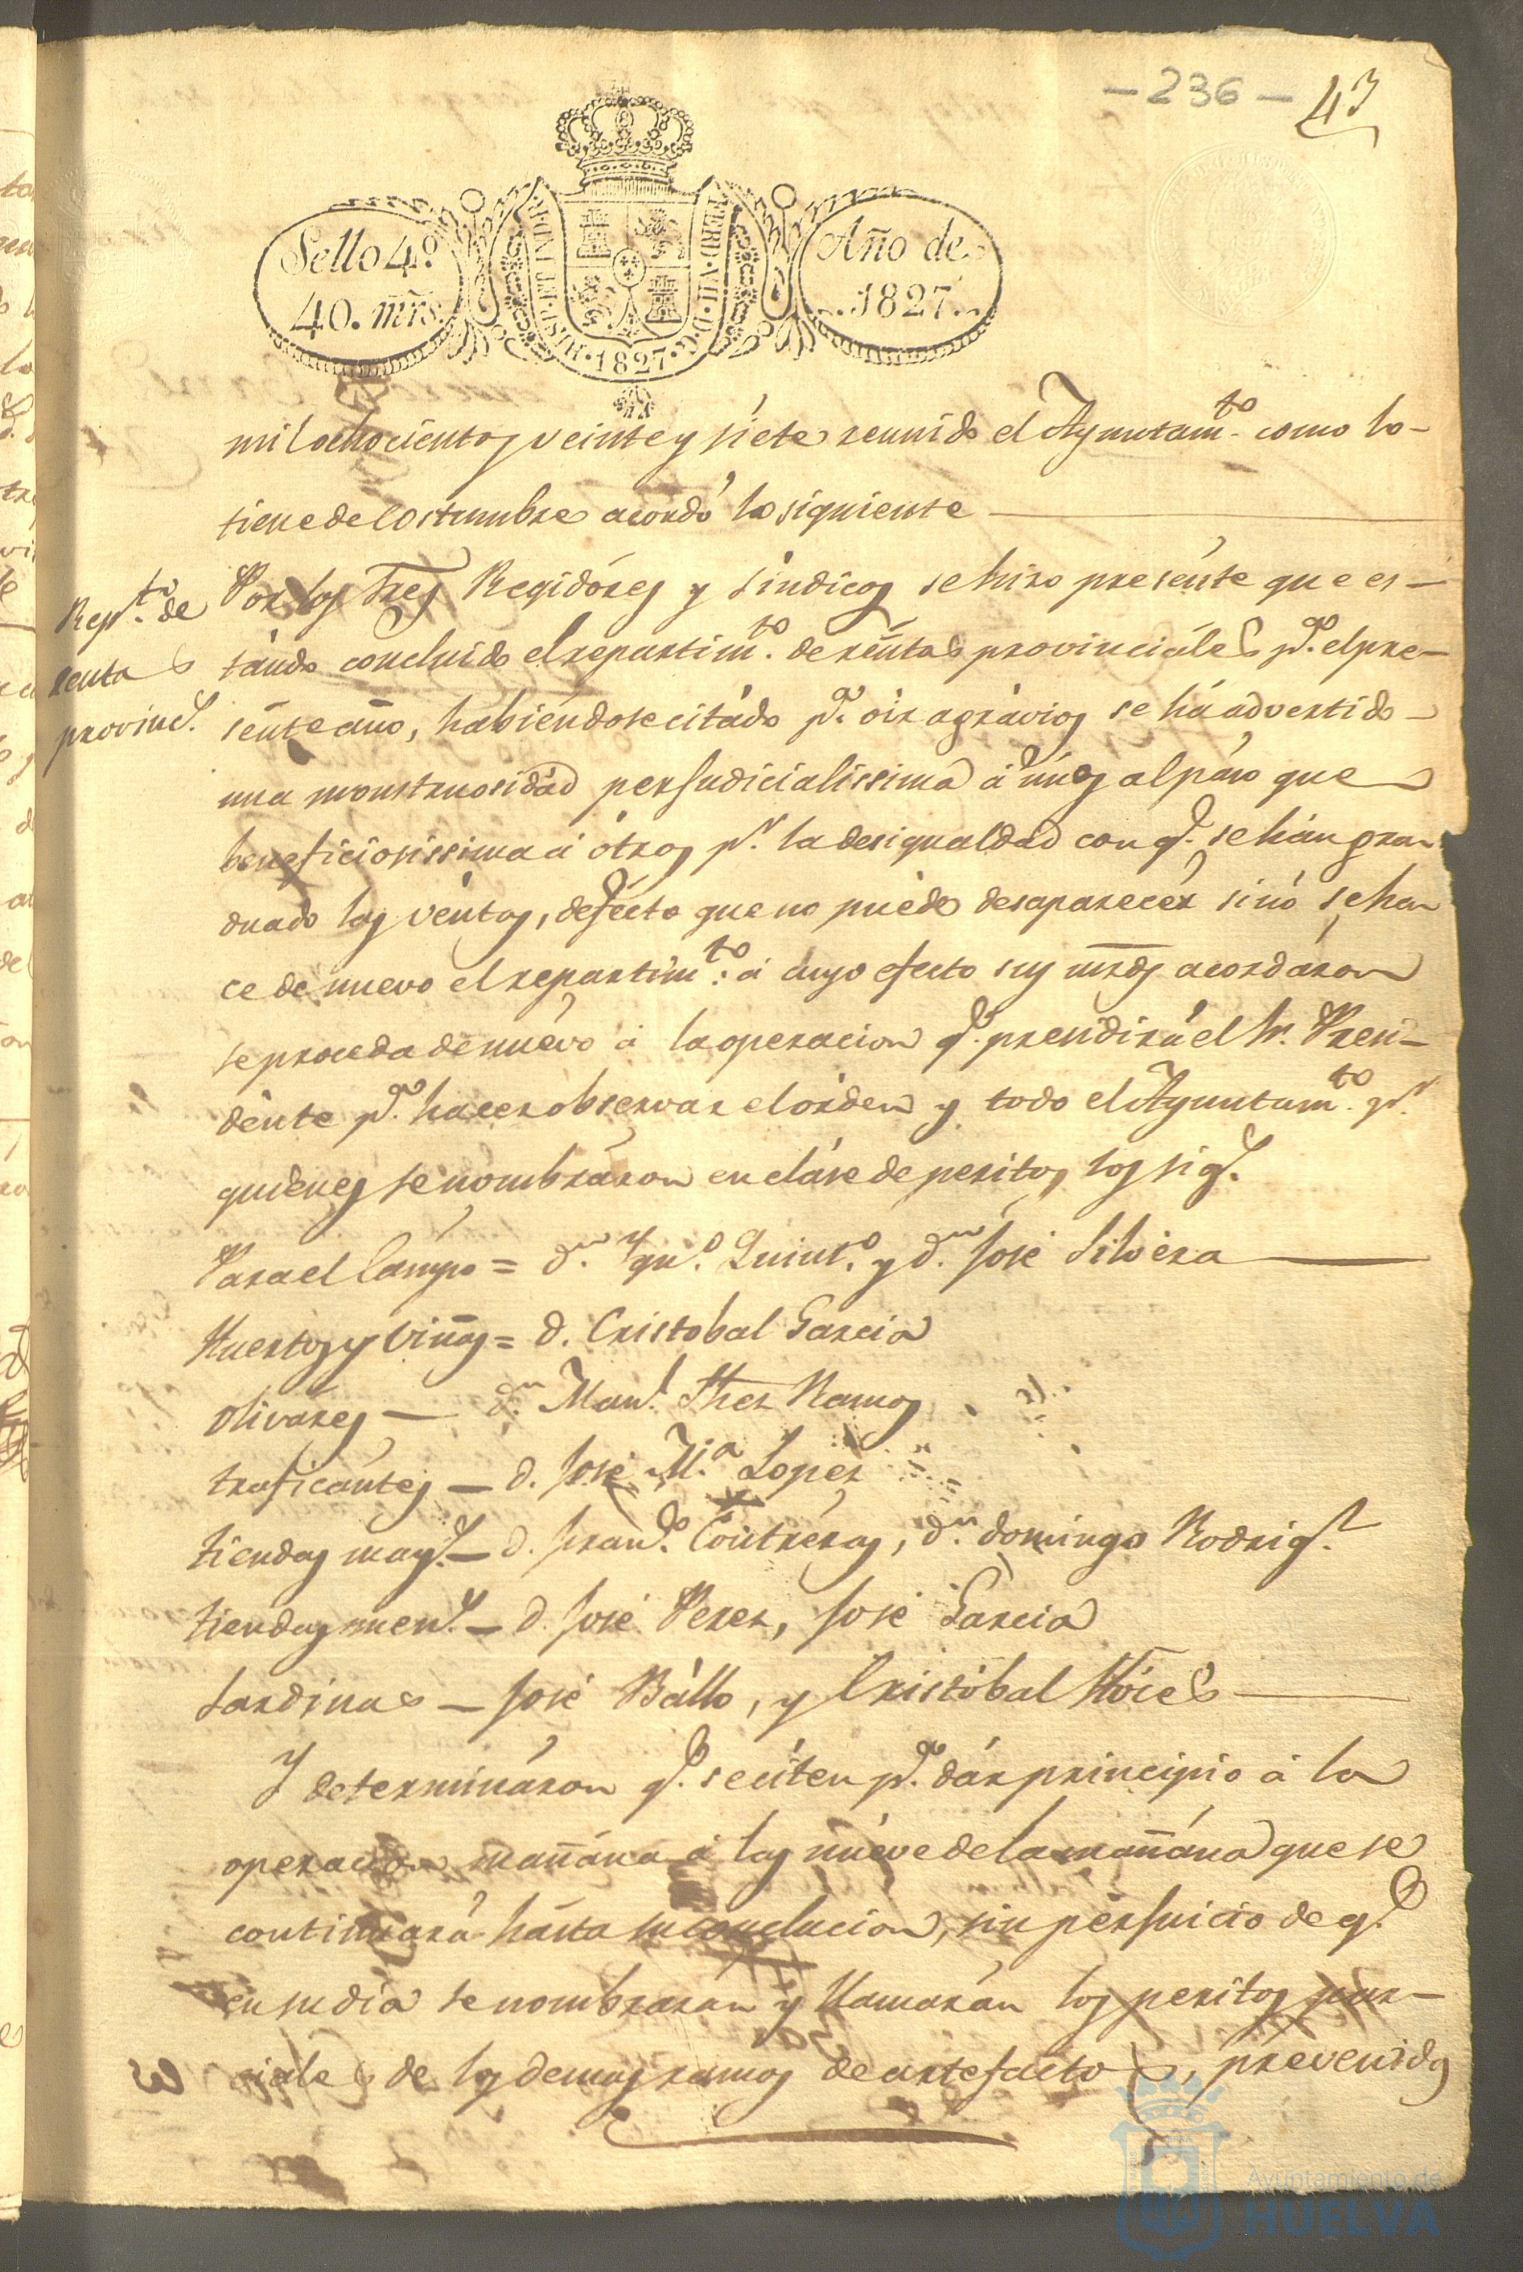 — 236 — 43
Sello 4º.
40. mr̃s.
HISP. ET IND. R.
FERD. VII. D. G.
1827
Año de
1827.
mil ochocientos veinte y siete reunido el Ayuntam.to como lo-
tiene de costumbre acordó lo siguiente
Rep.to de
rentas
provinc.s
Por los Sres Regidóres y Síndicos se hizo presénte que es-
tándo concluido el repartim.to de réntas provinciáles p.a el pre-
sénte año, habiéndose citádo p.a oir agrávios se há advertido
una monstruosidád perjudicialissima á únos al páso que
beneficiosissima á ótros p.r la desigualdad con q.e se hán gra-
duado las véntas, defécto que no puéde desaparecér sinó se ha-
ce de nuevo el repartim.to: á cuyo efecto sus mrds acordáron
se proceda de nuévo á la operacion q.e presidirá el Sr. Presi-
dénte p.a hacer observar el órden y todo el Ayuntam.to p.r
quiénes se nombráron en cláse de peritos los sig.s
Para el Campo = d.n Ygn.o Quint.o y d.n José Silvéra
Huertos y Viñas = d. Cristobal Garcia
Olivares — d.n Man.l Fhez Ramos
traficántes — d. José M.a Lopez
tiendas may.s — d. Fran.co Contréras, d.n domingo Rodrig.z
tiendas men.s — d. José Perez, José Garcia
Sardinas — José Bállo, y Cristóbal Hóces
Y determináron q.e se citen p.a dár principio á la
operacion mañána á las nuéve de la mañána que se
continuará hásta su conclucion, sin perjuicio de q.e
en su dia se nombraran y llamarán los peritos par-
ciales de los demas ramos de artefactos, prevenidos
Ayuntamiento de
HUELVA